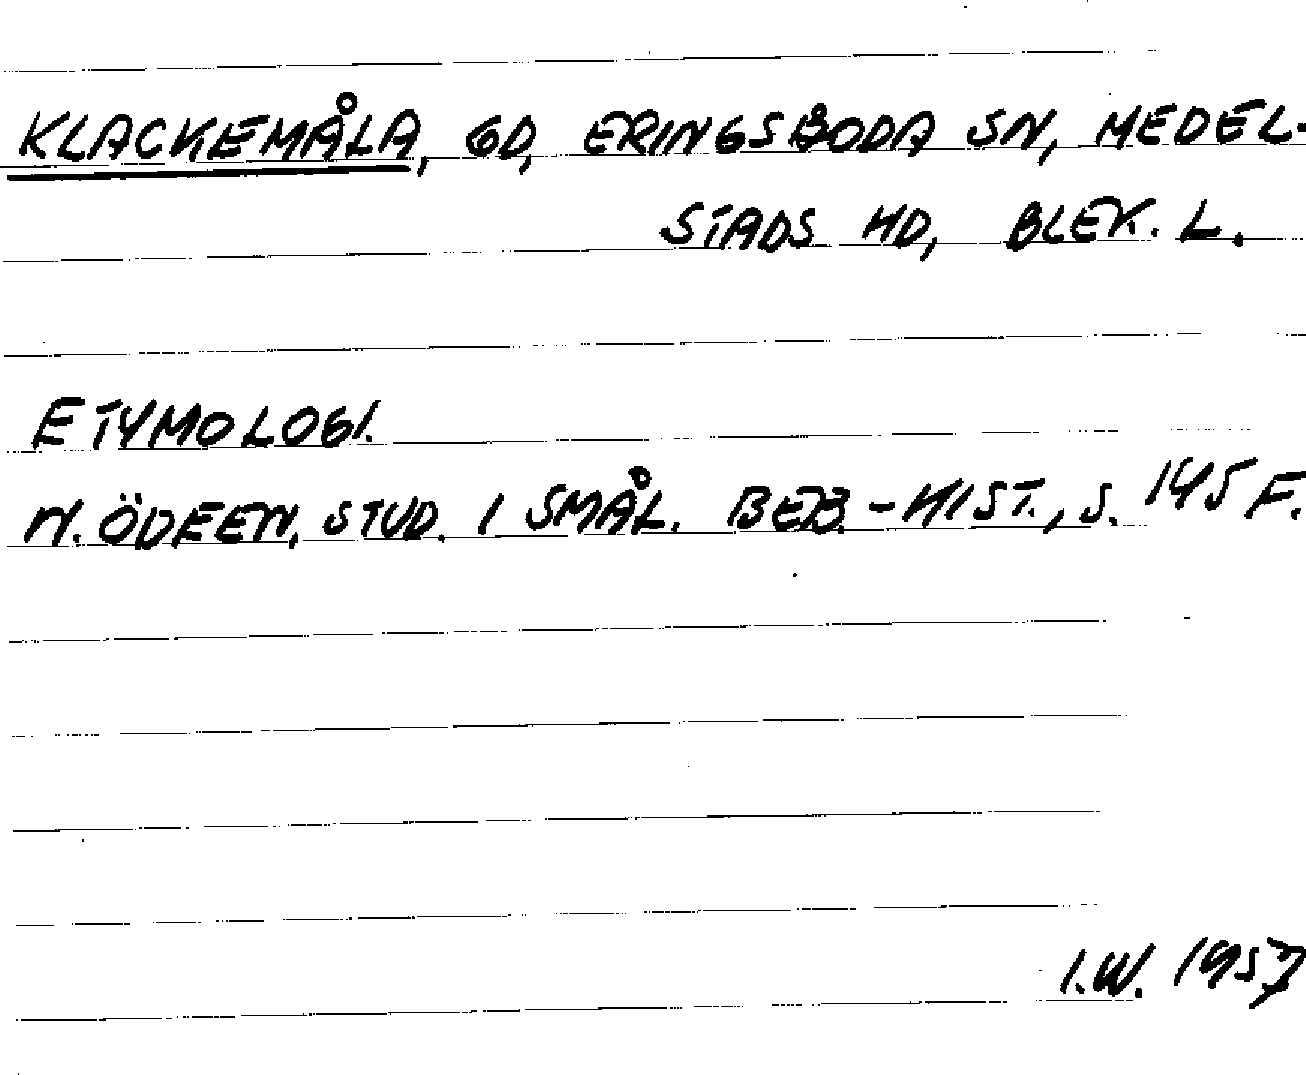 KLACKEMÅLA, GD, ERINGSBODA SN, MEDEL-
STADS HD, BLEK. L.
ETYMOLOGI.
N. ÖDEEN, STUD. I SMÅL. BEB.-HIST., S. 145 F.
I.W. 1957